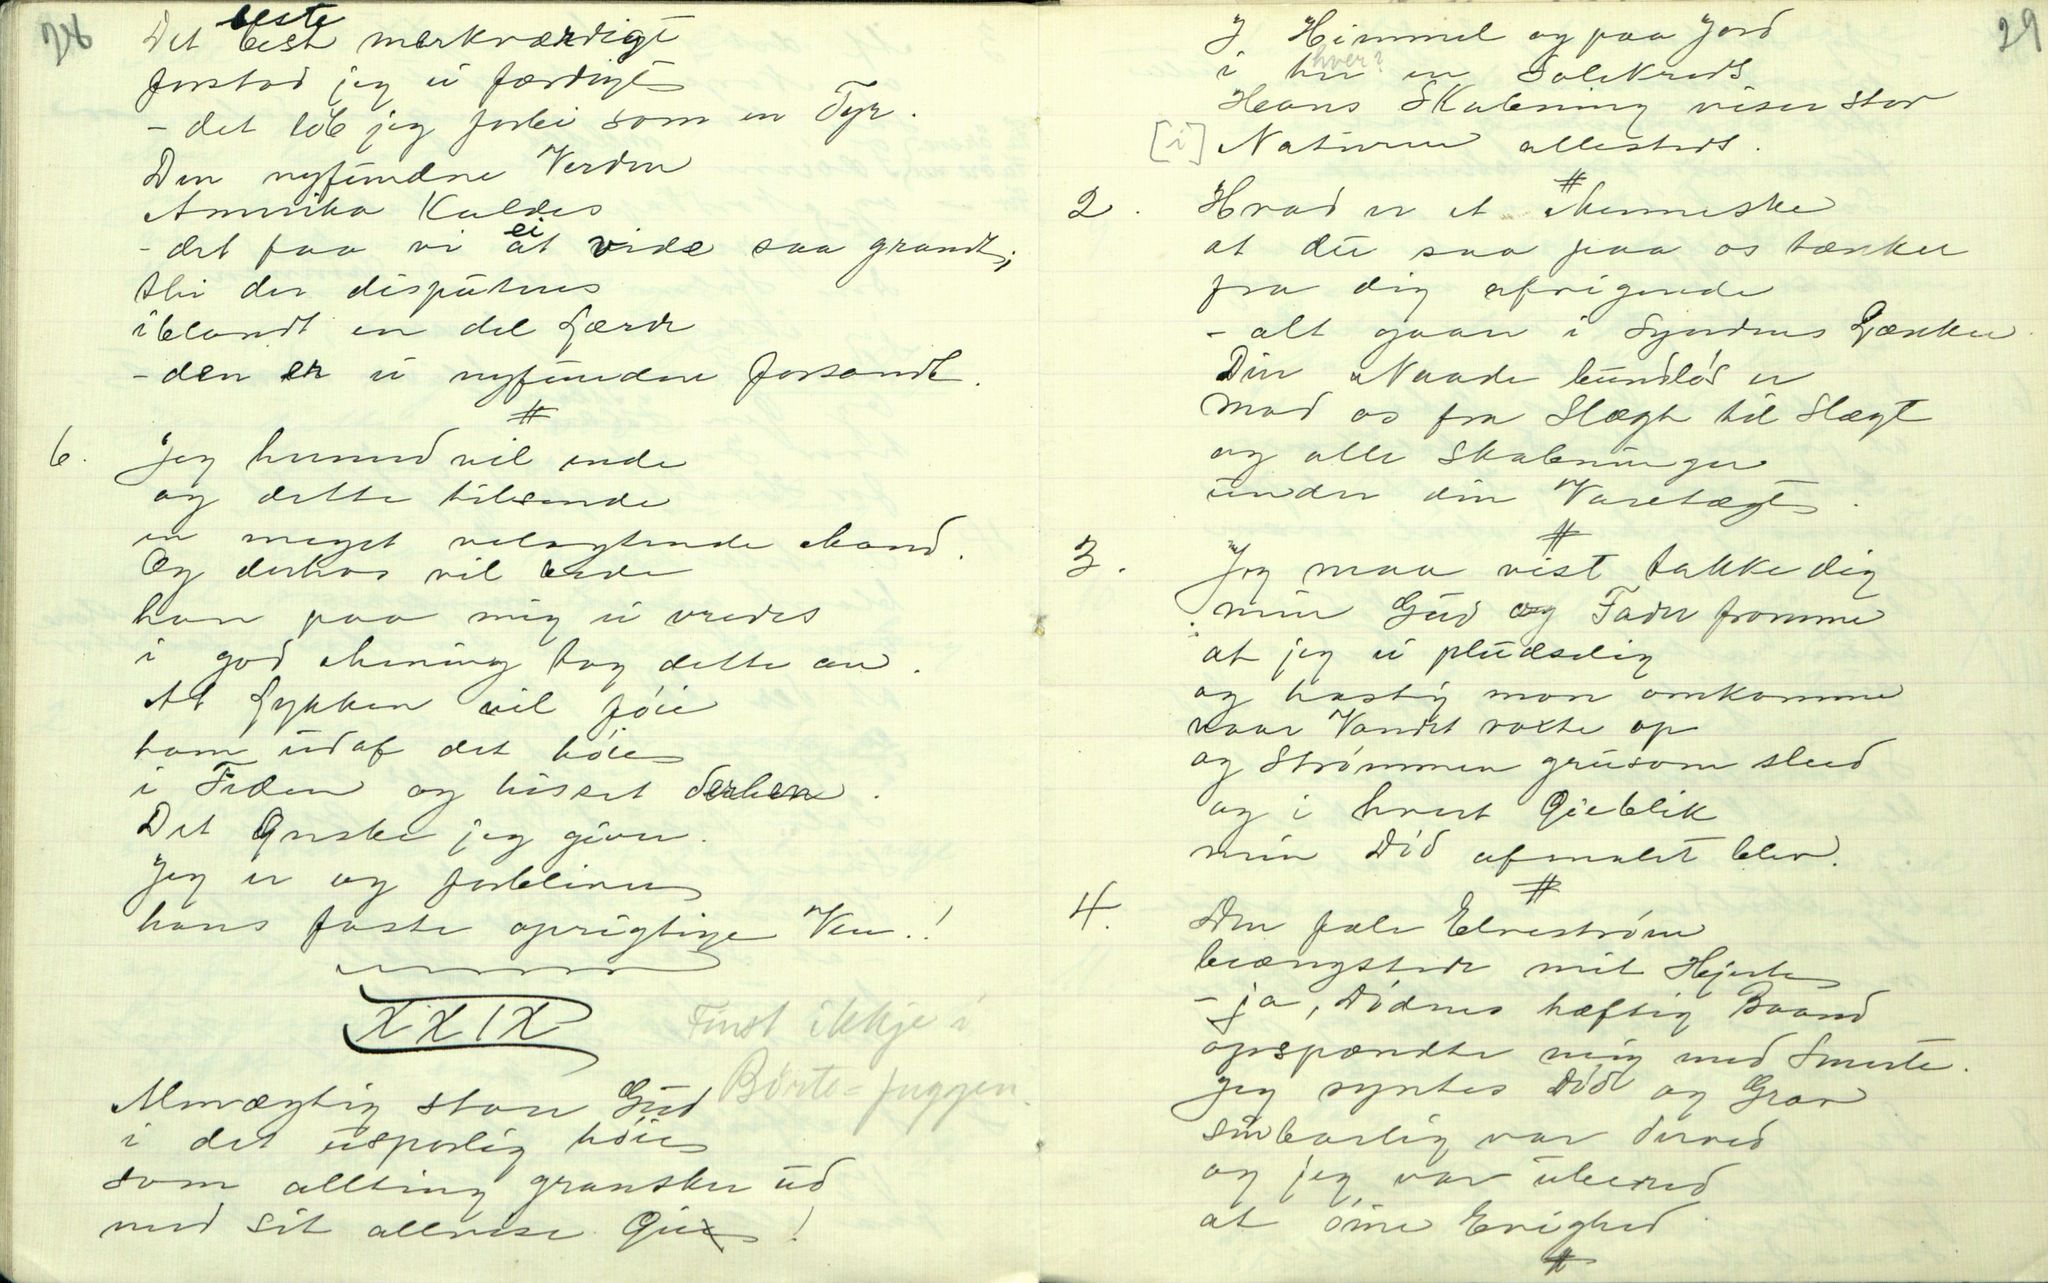 28
beste
Det best merkværdigt
forstod jeg ei færdigt
- det løb jeg forbi som en Tyr.
Den nyfundne Verden
Amerika Kaldes
ei
- det faa vi at vide saa grandt;
thi der disputeres
iblandt en del Lærde
- den er ei nyfunden forsandt.
#
6. Jeg hermed vil ende
og dette tilsende
en meget velagtende Mand.
Og derhos vil bede
han paa mig ei vredes
i god Mening tog dette an.
At Lykken vil føie
ham ud af det høie
i Tiden og hisset derhen.
Det Ønske jeg giver.
Jeg er og forbliver
hans faste oprigtige Ven!
XXIX
Finst ikkje i
Börte-Juggen.
Almægtig store Gud
i det usporlig høie
som allting gransker ud
med sit allvise Øie!
29
I Himmel og paa Jord
hver?
i her en Solekreds
Hans Skabning viser stor
[i] Naturen allesteds.
#
2. Hvad er et Menneske
at du saa paa os tænker
fra dig afvigende
- alt gaaer i Syndens Lænker
Din Naade bundløs er
mod os fra Slægt til Slægt
og alle Skabninger
under din Varetægt.
#
3. Jeg maa vist takke dig
min Gud og Fader fromme
at jeg ei pludselig
og hastig mon omkomme
naar Vandet voxte op
og Strømmen grusom sled
og i hvert Øieblik
min Død afmalet blev.
#
4. Den fæle Elvestrøm
beængstede mit Hjerte
- ja, Dødens hæftig Baand
opspændte mig med Smerte.
Jeg syntes Død og Grav
sinbarlig var derved
og jeg var uberedt
at Evighed
#